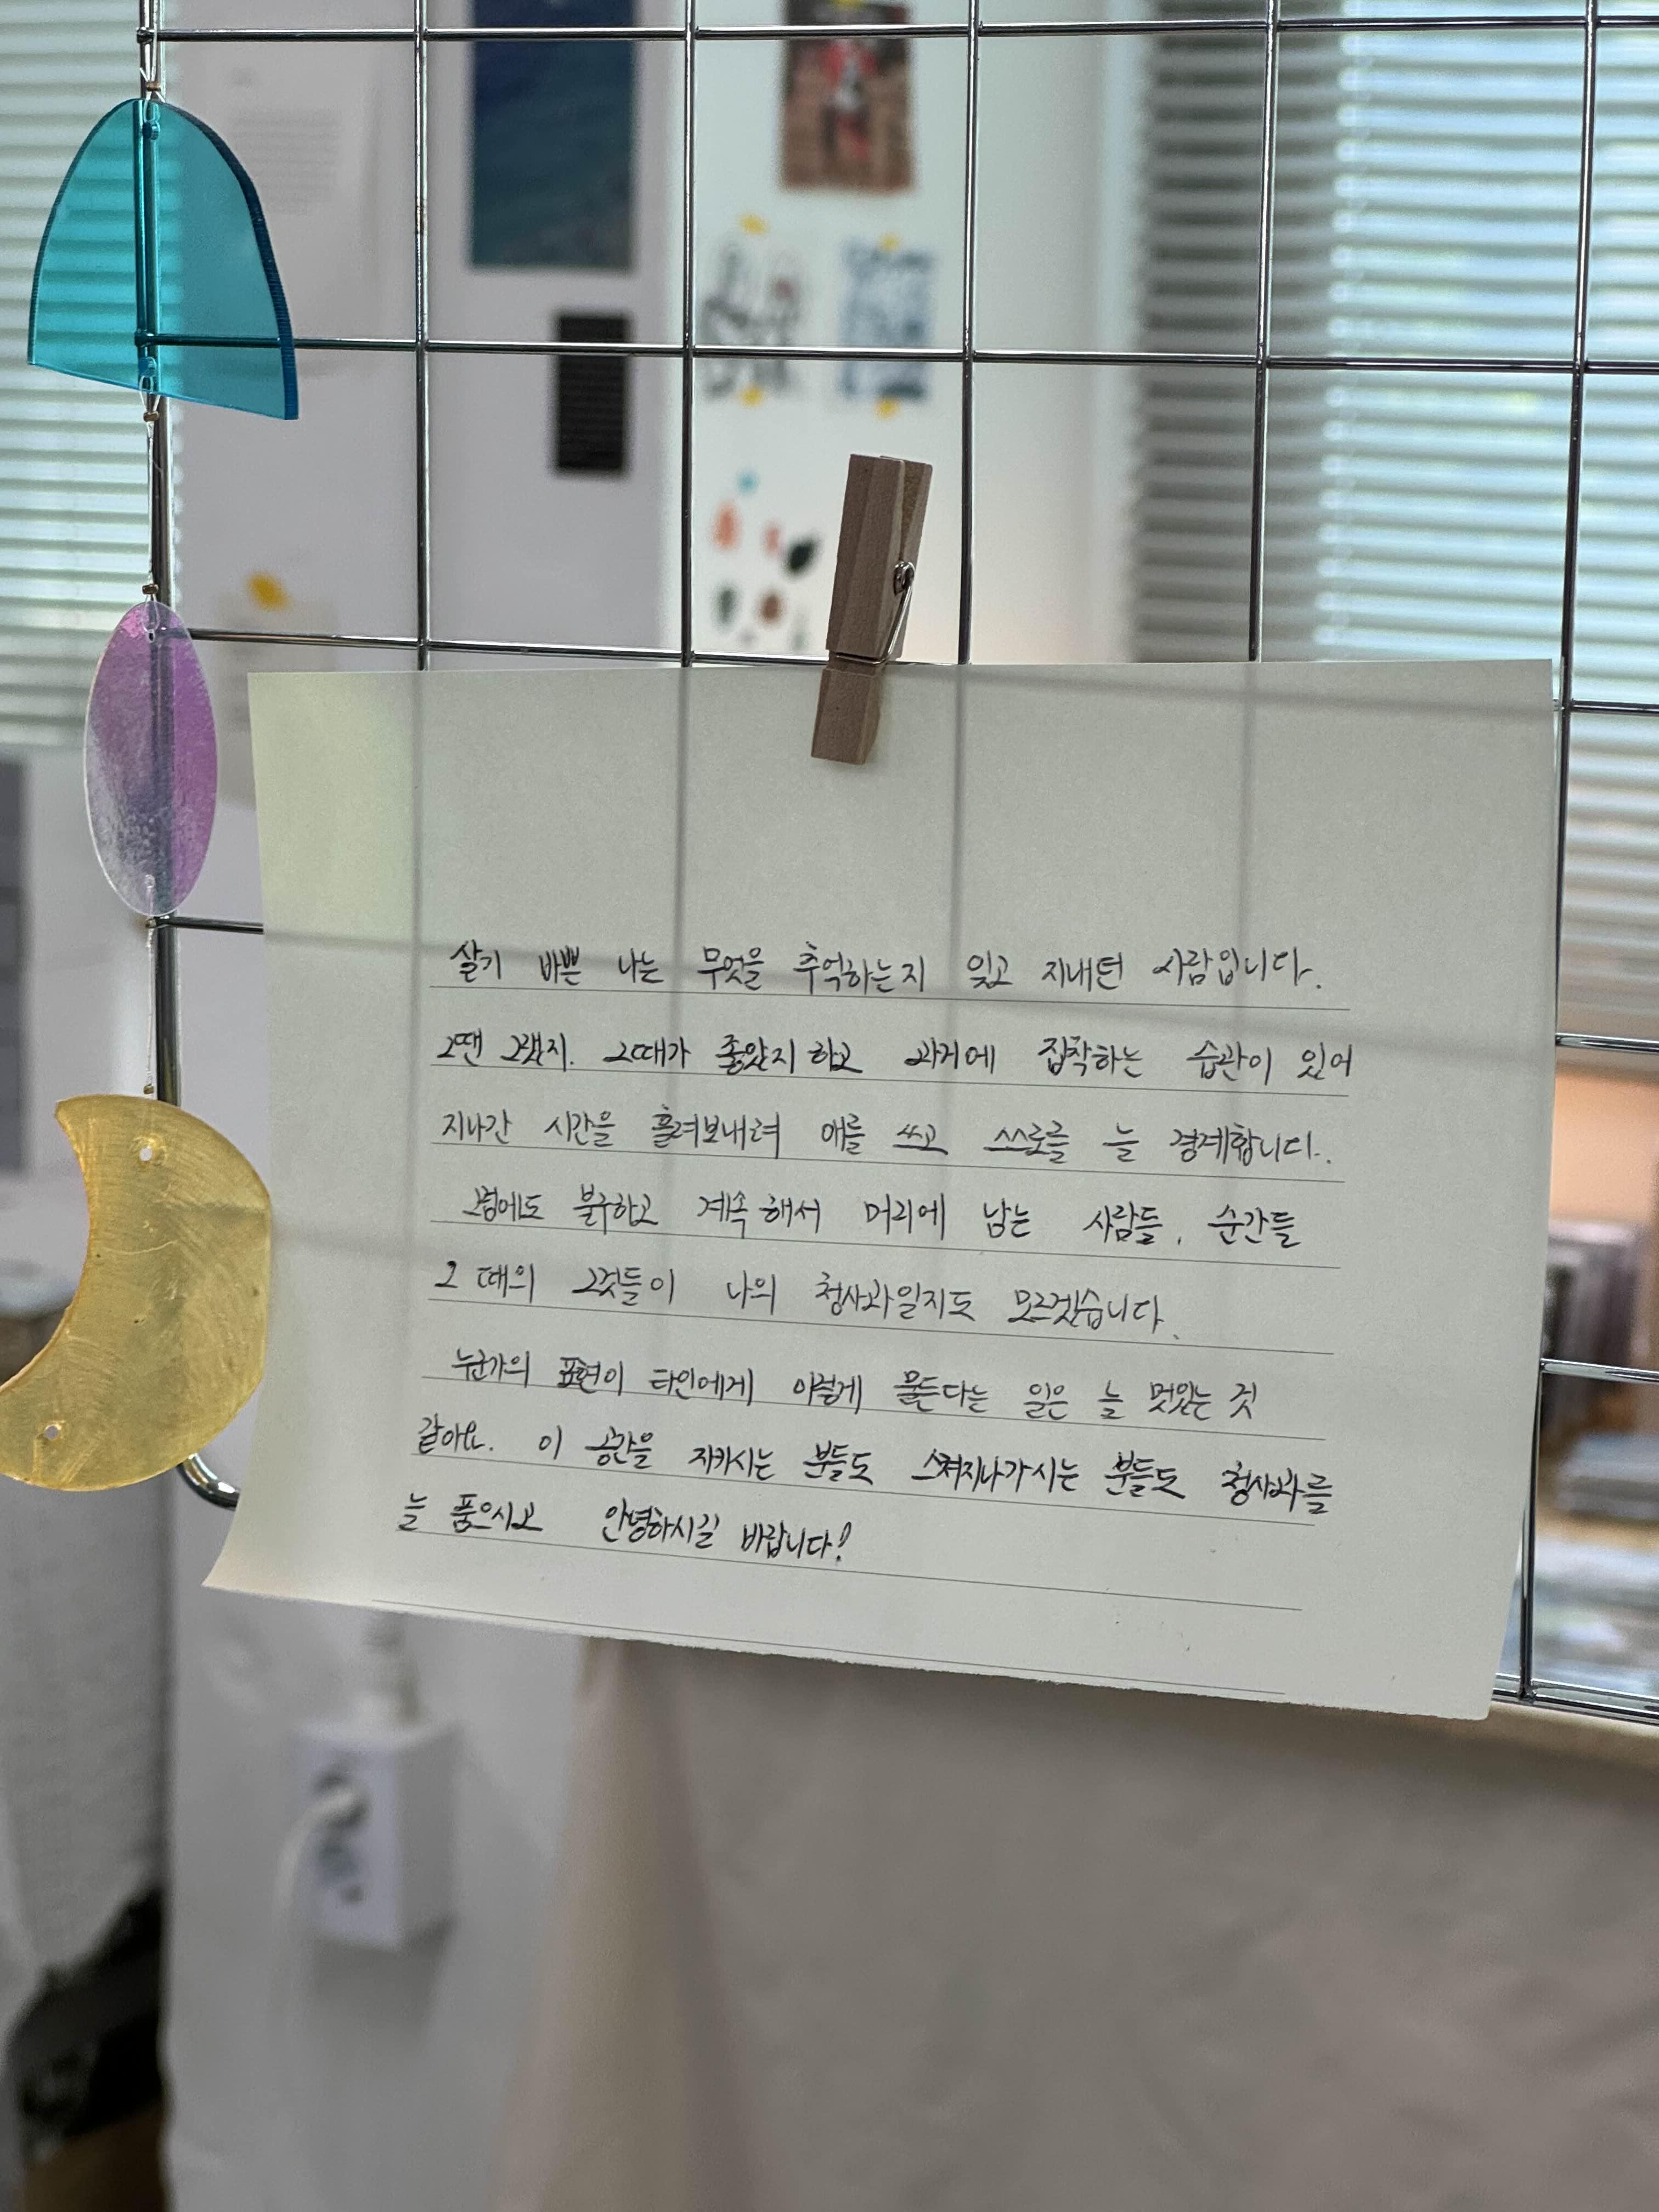 살기 바쁜 나는 무엇을 추억하는지 잊고 지내던 사람입니다.
그땐 그랬지. 그때가 좋았지 하고 과거에 집착하는 습관이 있어
지나간 시간을 흘려보내려 애를 쓰고 스스로를 늘 경계합니다.
그럼에도 불구하고 계속해서 머리에 남는 사람들, 순간들
그 때의 그것들이 나의 청사과일지도 모르겠습니다.
누군가의 표현이 타인에게 이렇게 물든다는 일은 늘 멋있는 것
같아요. 이 공간을 지키시는 분들도 스쳐지나가시는 분들도 청사과를
늘 품으시고 안녕하시길 바랍니다!